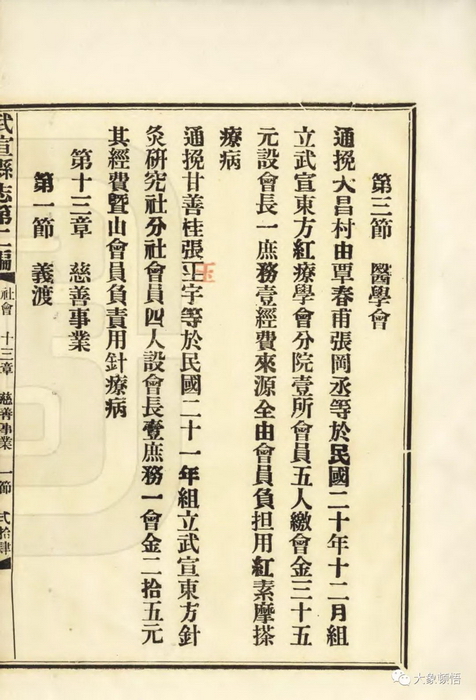 第三節　醫學會
通挽大昌村由覃春甫張岡丞等於民國二十年十二月組
立武宣東方紅療學會分院壹所會員五人繳會金三十五
元設會長一庶務壹經費來源全由會員負担用紅素摩搽
療病
通挽甘善桂張正字等於民國二十一年組立武宣東方針
玉
灸研究社分社會員四人設會長壹庶務一會金二拾五元
其經費曁山會員負責用針療病
第十三章　慈善事業
第一節　義渡
武宣縣志第二編　社會　十三章　慈善事業　一節　弍拾肆
大象頓悟